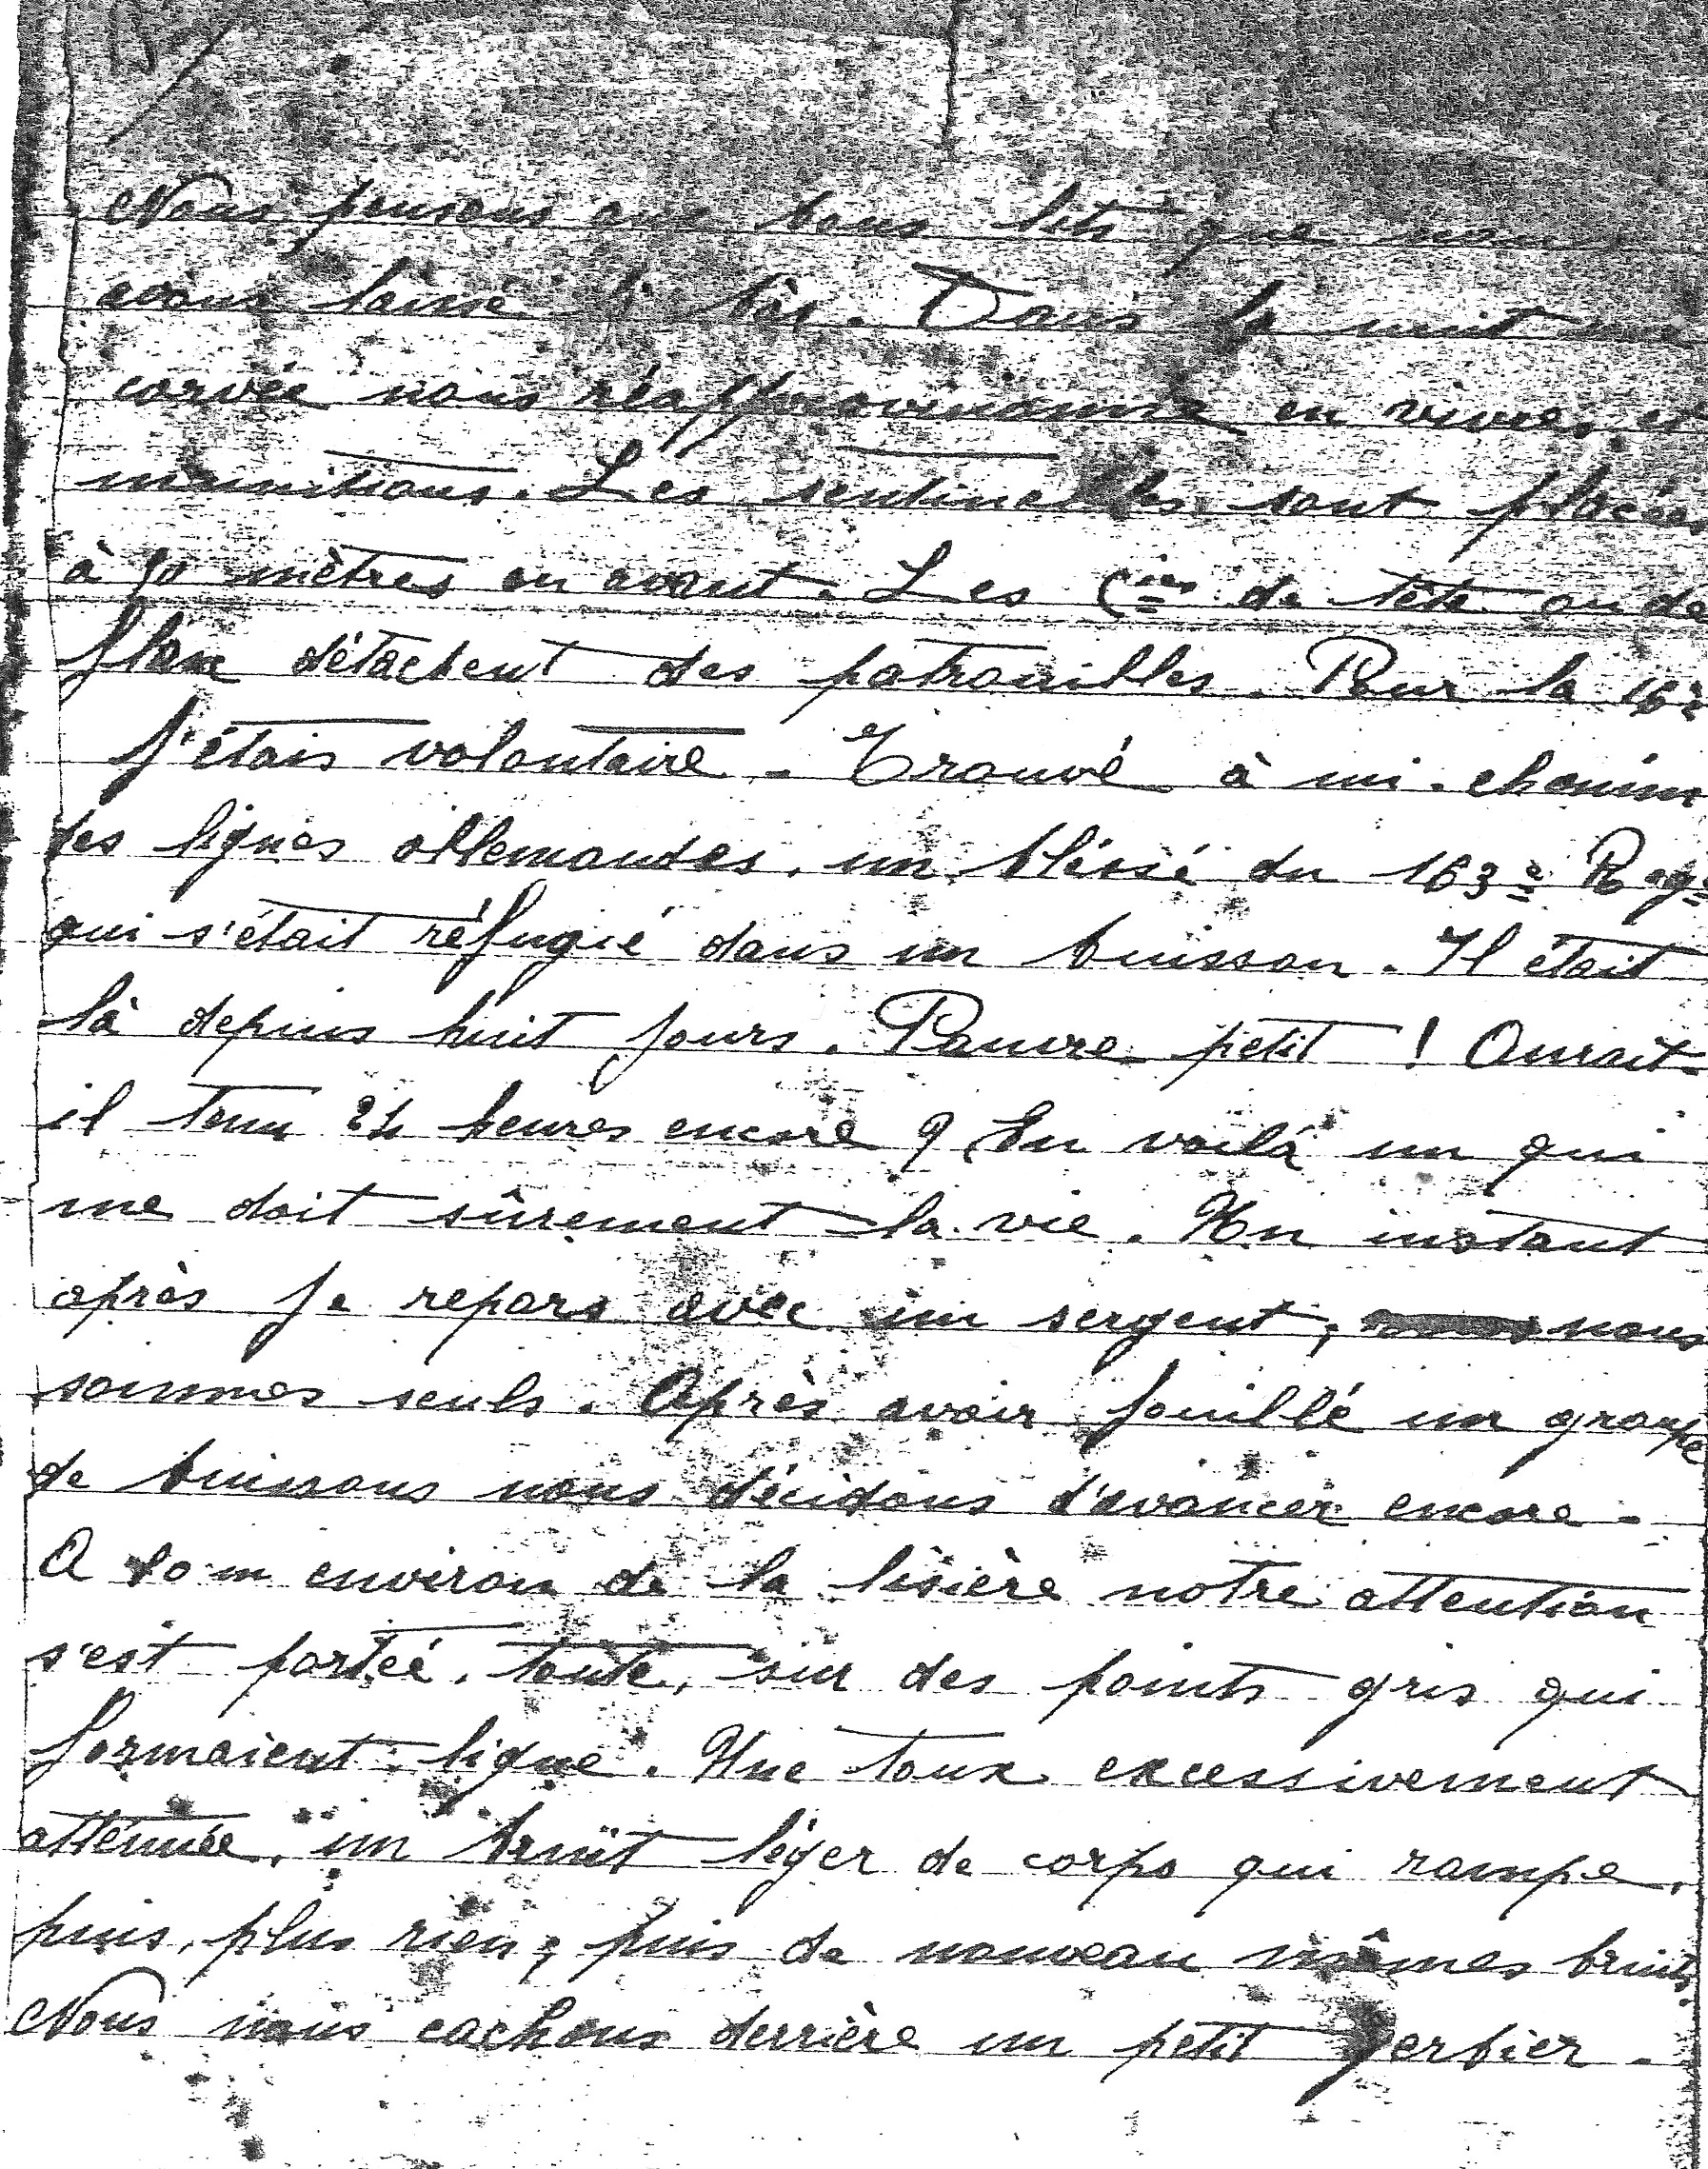 Nous pensons aux bons lits que nous
avons laissé là bas. Dans la nuit une
corvée nous réapprovisionne en vivres et
munitions. Les sentinelles sont placées
à mètres en avant. Les Cies de tête ou de
flanc détachent des patrouilles. Pour la 16e
j'étais volontaire. Trouvé à mi-chemin
des lignes allemandes, un bléssé du 163e Reg
qui s'était réfugié dans un buisson. Il était
là depuis huit jours. Pauvre petit ! Aurait-
il tenu 24 heures encore ? En voilà un qui
me doit sûrement la vie. Un instant
après je repars avec un sergent, nous
sommes seuls. Après avoir fouillé un groupe
de buissons nous décidons d'avancer encore.
A m environ de la lisière notre attention
s'est portée, toute, sur des points gris qui
formaient ligne. Une toux excessivement
atténuée, un bruit léger de corps qui rampe,
puis, plus rien ; puis de nouveau mêmes bruits
Nous nous cachons derrière un petit gerbier.